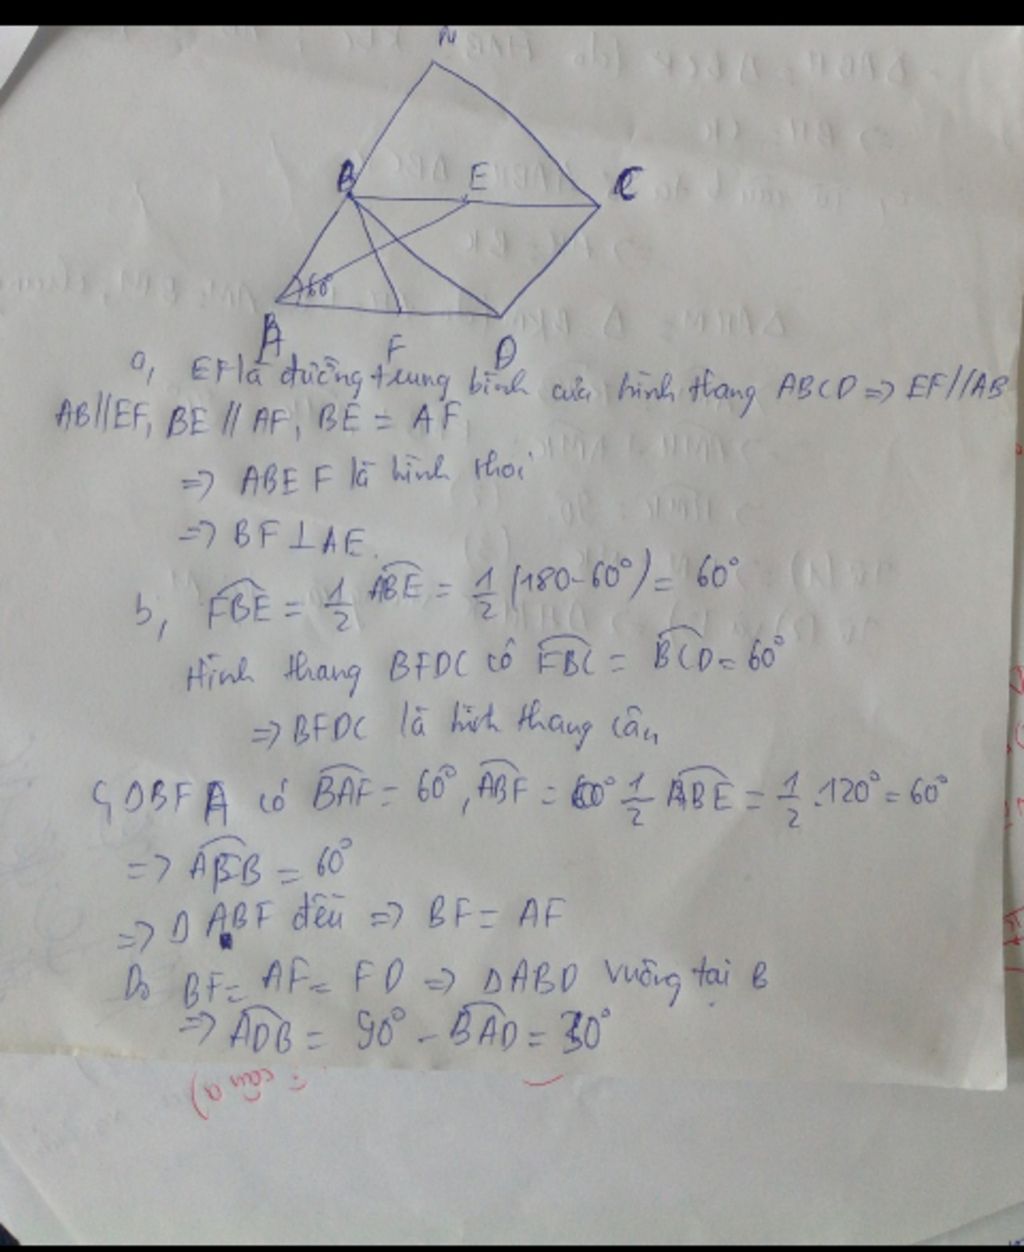 M
B E C
60°
A F D
a, EF là đường trung bình của hình thang ABCD => EF//AB
AB//EF, BE // AF, BE = AF
=> ABEF là hình thoi
=> BF ⊥ AE.
b, FBE = 1/2 ABE = 1/2 (180-60°) = 60°
Hình thang BFDC có FBC = BCD = 60°
=> BFDC là hình thang cân
c, ΔBFA có BAF = 60°, ABF = 1/2 ABE = 1/2 .120° = 60°
=> AFB = 60°
=> Δ ABF đều => BF = AF
Do BF = AF = FD => ΔABD vuông tại B
=> ADB = 90° - BAD = 30°